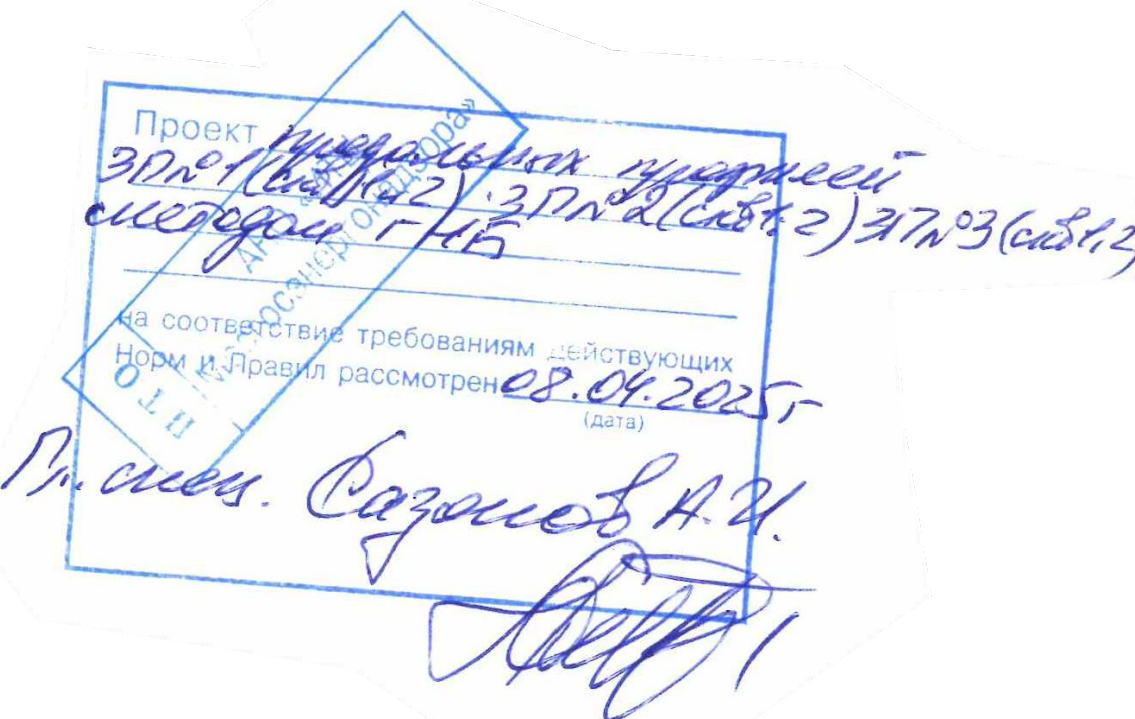 Проект
ЗП№1(скв1,2) ЗП№2(скв1,2) ЗП№3(скв1,2)
методом ГНБ
на соответствие требованиям действующих
Норм и Правил рассмотрен 08.04.2025г
(дата)
Гл. спец. Сазонов А.И.
ПТО
осэнергонадзора»